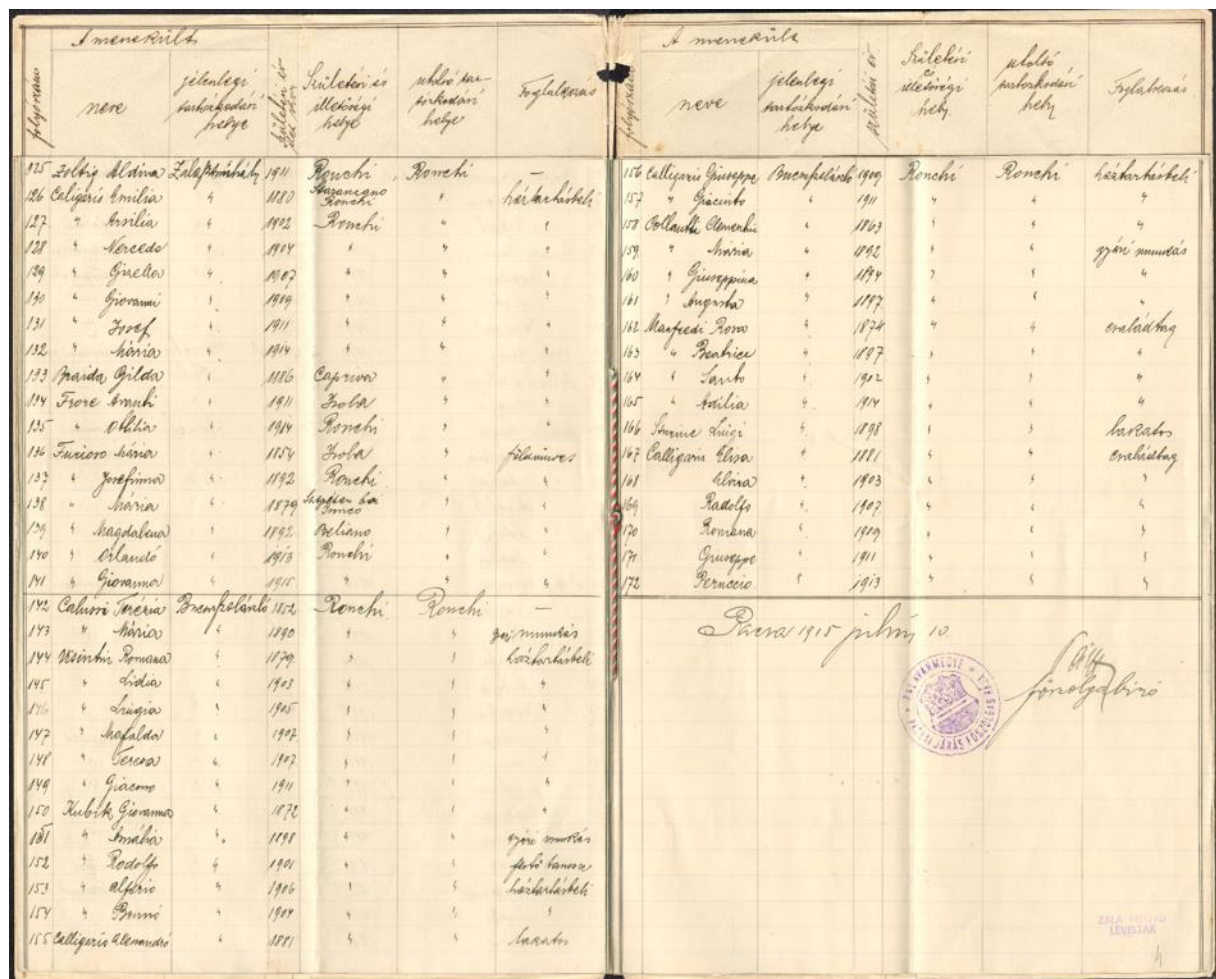 A menekült
folyószám neve jelenlegi tartózkodási helye születési év Születési és illetőségi helye utolsó tartózkodási helye Foglalkozás
125 Zoltig Aldina 1911 Ronchi Ronchi
126 Caligaris Emilia " 1880 Ronchi " háztartásbeli
127. " Ersilia " 1902 Ronchi " "
128 " Mercede " 1904 " " "
129 " Gizella " 1907 " " "
130 " Giovanni " 1909 " " "
131 " Josef " 1911 " " "
132 " Mária " 1914 " " "
133 Braida Gilda " 1886 Capriva " "
134 Frore Avanti " 1911 Isola " "
135 " Ottilia " 1914 Ronchi " "
136 Furioso Mária " 1854 Isola " földmíves
137 " Josefinna " 1892 Ronchi " "
138 " Mária " 1879 " "
139 " Magdalena " 1892 Beliano " "
140 " Orlandó " 1913 Ronchi " "
141 " Giovanna " 1915 " " "
142 Calussi Terézia Bucsuszentlászló 1852 Ronchi Ronchi —
143 " Mária " 1890 " " gyári munkás
144 Visintin Romana " 1879 " " háztartásbeli
145 " Lidia " 1903 " " "
146 " Luigia " 1905 " " "
147 " Mafalda " 1907 " " "
148 " Teresa " 1907 " " "
149 " Giacomo " 1911 " " "
150 Kubik Giovanna " 1872 " " "
151 " Amália " 1898 " " gyári munkás
152 " Rodolfo " 1901 " "
153 " Alferio " 1906 " " háztartásbeli
154 " Bruno " 1904 " " "
155 Calligaris Alessandró " 1881 " " lakatos
A menekült
folyószám neve jelenlegi tartózkodási helye születési év Születési és illetőségi hely. utolsó tartózkodási hely Foglalkozás
156 Calligaris Giuseppe 1909 Ronchi Ronchi háztartásbeli
157 " Giacinto " 1911 " " "
158 Collautti Clementin " 1863 " " "
159. " Mária " 1892 " " gyári munkás
160 " Giuseppina " 1894 " " "
161 " Augusta " 1897 " " "
162 Manfredi Rosa " 1874 " " családtag
163 " Beatrice " 1897 " " "
164 " Santo " 1902 " " "
165 " Adilia " 1914 " " "
166 Luigi " 1898 " " lakatos
167 Calligaris Elisa " 1881 " " családtag
168 Elvira " 1903 " " "
169 Radolfo " 1907 " " "
170 Romana " 1909 " " "
171 Giuseppe " 1911 " " "
172 Feruccio " 1913 " " "
Pacsa 1915 július 10.
főszolgabíró
ZALA MEGYEI
LEVÉLTÁR